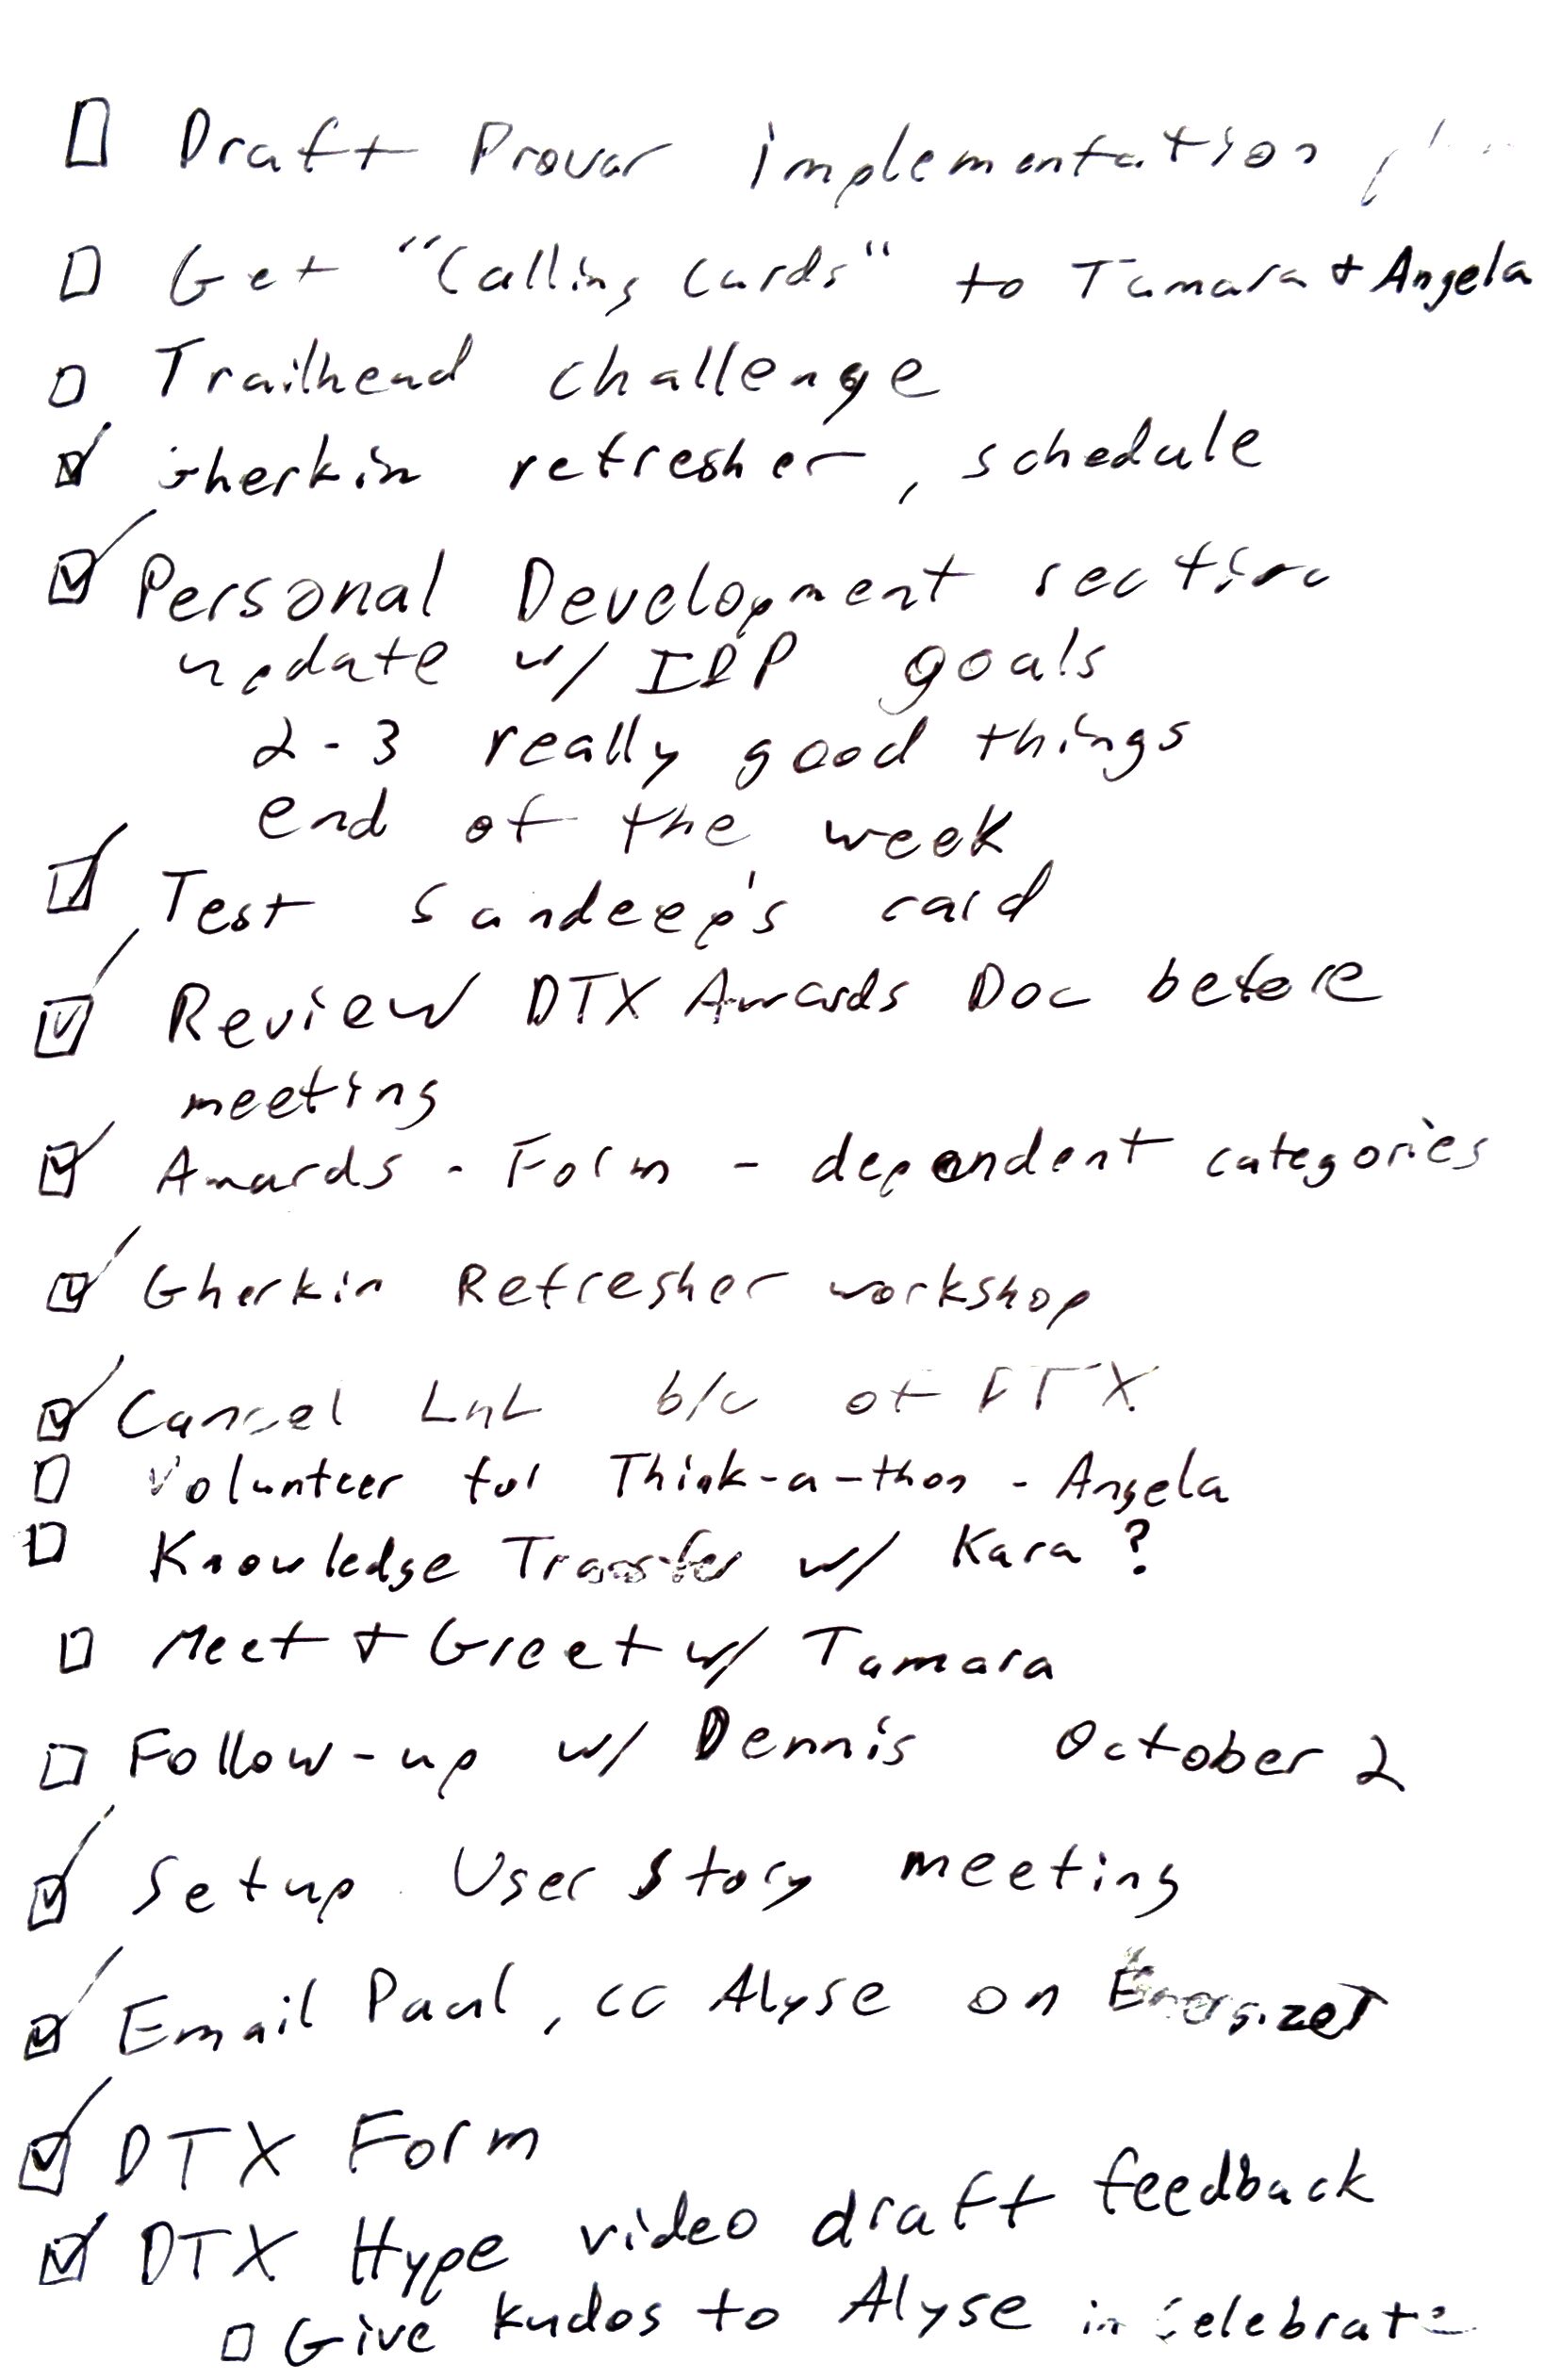 Draft Provar implementation
Get "Calling Cards" to Tamara + Angela
Trailhead challenge
Gherkin refresher, schedule
Personal Development section
update w/ IDP goals
2-3 really good things
end of the week
Test Sandeep's card
Review DTX Awards Doc before
meeting
Awards - Form - dependent categories
Gherkin Refresher workshop
Cancel LnL b/c of DTX
Volunteer for Think-a-thon - Angela
Knowledge Transfer w/ Kara?
Meet + Greet w/ Tamara
Follow-up w/ Dennis October 2
Setup User Story meeting
Email Paul, cc Alyse on Energizer
DTX Form
DTX Hype video draft feedback
Give kudos to Alyse in Celebrate